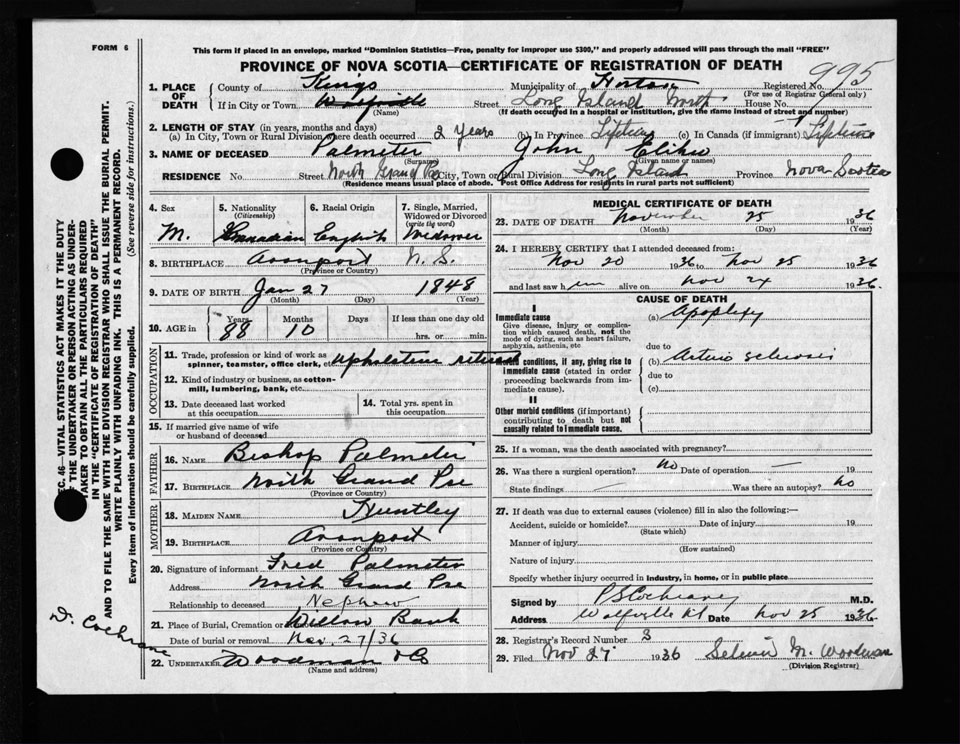 FORM 6
This form if placed in an envelope, marked "Dominion Statistics—Free, penalty for improper use $300," and properly addressed will pass through the mail "FREE"
PROVINCE OF NOVA SCOTIA—CERTIFICATE OF REGISTRATION OF DEATH
995
1. PLACE OF DEATH
County of Kings Municipality of Horton Registered No.
(For use of Registrar General only)
If in City or Town Wolfville Street Long Island North House No.
(Name) (If death occurred in a hospital or institution, give the name instead of street and number)
2. LENGTH OF STAY (in years, months and days)
(a) In City, Town or Rural Division where death occurred 2 Years (b) In Province Lifetime (c) In Canada (if immigrant) Lifetime
3. NAME OF DECEASED Palmeter John Elihu
(Surname) (Given name or names)
RESIDENCE No. Street North Grand Pre City, Town or Rural Division Long Island Province Nova Scotia
(Residence means usual place of abode. Post Office Address for residents in rural parts not sufficient)
4. Sex
M.
5. Nationality
(Citizenship)
Canadian
6. Racial Origin
English
7. Single, Married, Widowed or Divorced
(write the word)
Widower
8. BIRTHPLACE Avonport N.S.
(Province or Country)
9. DATE OF BIRTH Jan 27 1848
(Month) (Day) (Year)
10. AGE in Years Months Days If less than one day old
88 10 hrs. or min.
OCCUPATION
11. Trade, profession or kind of work as spinner, teamster, office clerk, etc. retired
12. Kind of industry or business, as cotton-mill, lumbering, bank, etc.
13. Date deceased last worked at this occupation
14. Total yrs. spent in this occupation
15. If married give name of wife or husband of deceased
FATHER
16. NAME Bishop Palmeter
17. BIRTHPLACE North Grand Pre
(Province or Country)
MOTHER
18. MAIDEN NAME Huntley
19. BIRTHPLACE Avonport
(Province or Country)
20. Signature of informant Fred Palmeter
Address North Grand Pre
Relationship to deceased Nephew
21. Place of Burial, Cremation or Willow Bank
Date of burial or removal Nov. 27/36
22. UNDERTAKER Woodman & Co
(Name and address)
MEDICAL CERTIFICATE OF DEATH
23. DATE OF DEATH November 25 1936
(Month) (Day) (Year)
24. I HEREBY CERTIFY that I attended deceased from:
Nov 20 1936 to Nov 25 1936
and last saw him alive on Nov 24 1936.
CAUSE OF DEATH
I
Immediate cause
Give disease, injury or complication which caused death, not the mode of dying, such as heart failure, asphyxia, asthenia, etc
(a) Apoplexy
due to
Morbid conditions, if any, giving rise to immediate cause (stated in order proceeding backwards from immediate cause).
(b) Arterio sclerosis
due to
(c)
II
Other morbid conditions (if important) contributing to death but not causally related to immediate cause.
25. If a woman, was the death associated with pregnancy?
26. Was there a surgical operation? No Date of operation — 19
State findings — Was there an autopsy? No
27. If death was due to external causes (violence) fill in also the following:—
Accident, suicide or homicide? Date of injury 19
(State which)
Manner of injury
(How sustained)
Nature of injury
Specify whether injury occurred in industry, in home, or in public place
Signed by Cochrane M.D.
Address Wolfville Date Nov 25 1936.
28. Registrar's Record Number 3
29. Filed Nov 27 1936 M. Woodman
(Division Registrar)
SEC. 46—VITAL STATISTICS ACT MAKES IT THE DUTY
OF THE UNDERTAKER OR PERSON ACTING AS UNDERTAKER TO OBTAIN ALL THE PARTICULARS REQUIRED
IN THE "CERTIFICATE OF REGISTRATION OF DEATH"
AND TO FILE THE SAME WITH THE DIVISION REGISTRAR WHO SHALL ISSUE THE BURIAL PERMIT.
WRITE PLAINLY WITH UNFADING INK. THIS IS A PERMANENT RECORD.
Every item of information should be carefully supplied. (See reverse side for instructions.)
Dr. Cochrane